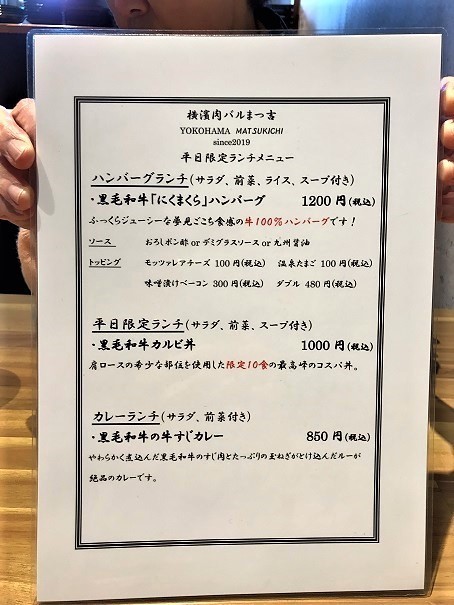 横濱肉バルまつ吉
YOKOHAMA MATSUKICHI
since2019
平日限定ランチメニュー
ハンバーグランチ(サラダ、前菜、ライス、スープ付き)
・黒毛和牛「にくまくら」ハンバーグ 1200円(税込)
ふっくらジューシーな夢見ごこち食感の牛100%ハンバーグです!
ソース おろしポン酢 or デミグラスソース or 九州醤油
トッピング モッツァレアチーズ 100円(税込) 温泉たまご 100円(税込)
味噌漬けベーコン 300円(税込) ダブル 480円(税込)
平日限定ランチ(サラダ、前菜、スープ付き)
・黒毛和牛カルビ丼 1000円(税込)
肩ロースの希少な部位を使用した限定10食の最高峰のコスパ丼。
カレーランチ(サラダ、前菜付き)
・黒毛和牛の牛すじカレー 850円(税込)
やわらかく煮込んだ黒毛和牛のすじ肉とたっぷりの玉ねぎがとけ込んだルーが
絶品のカレーです。